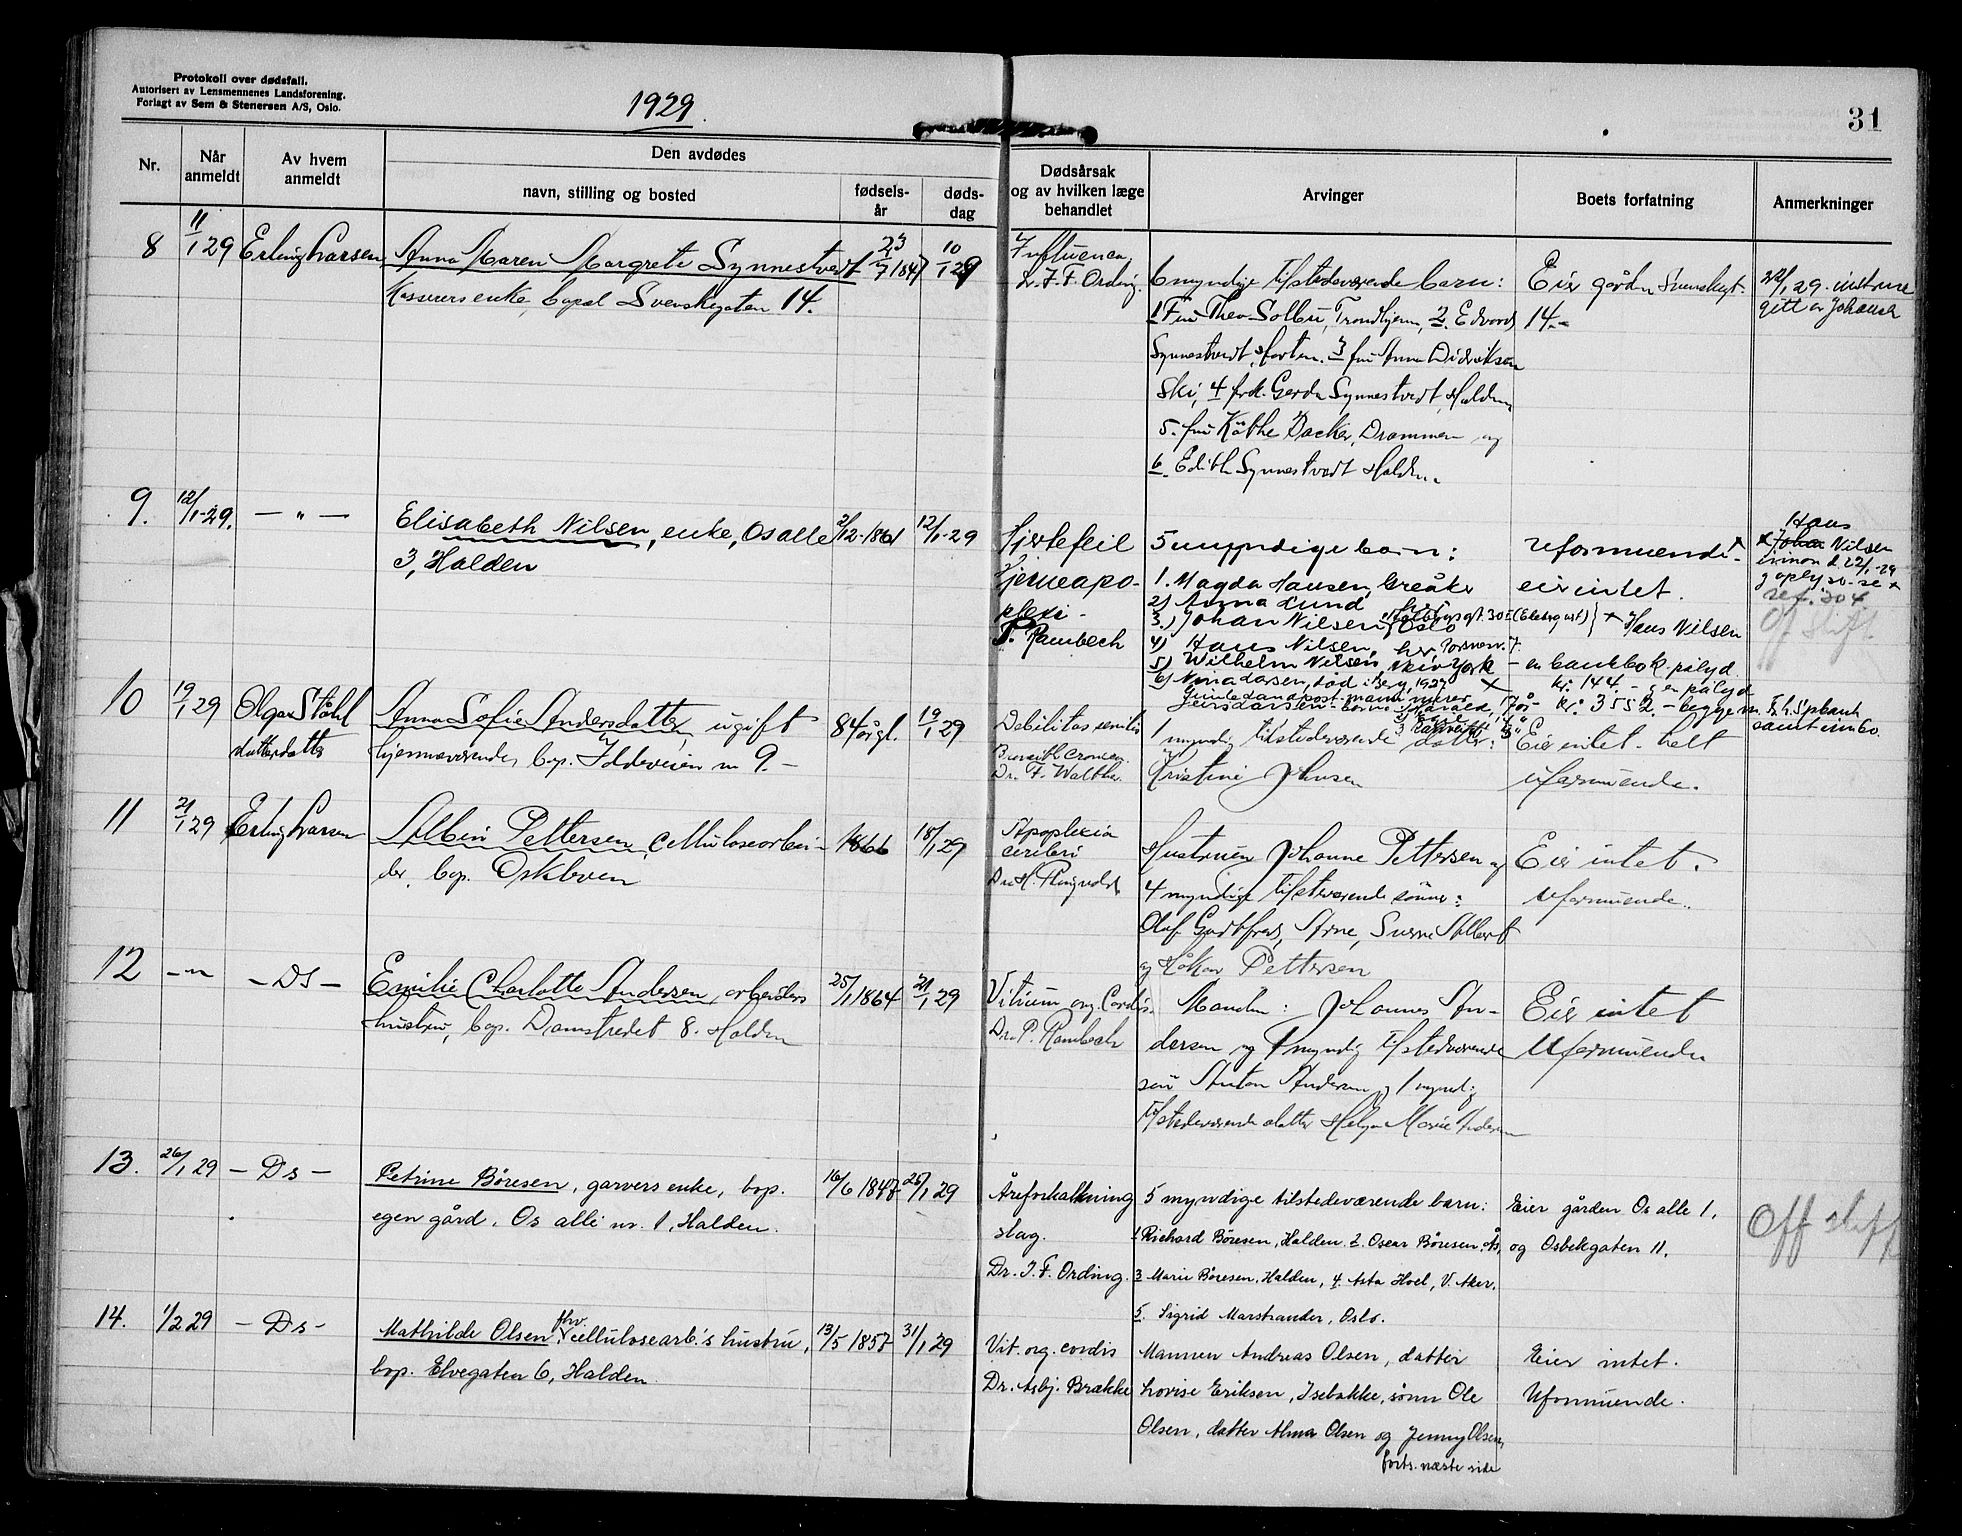 Protokoll over dødsfall.
Autorisert av Lensmennenes Landsforening.
Forlagt av Sem & Stenersen A/S, Oslo.
1929.
31
Nr.
Når anmeldt
Av hvem anmeldt
Den avdødes
navn, stilling og bosted
fødsels-år
døds-dag
Dødsårsak og av hvilken læge behandlet
Arvinger
Boets forfatning
Anmerkninger
8 11/1 29 Erling Larsen
Anna Maren Margrete Synnestvedt 23/7 1847 10/1 29
enke, bopæl Svenskegaten 14.
Influenca,
Dr. J. F. Ording.
6 myndige tilstedeværende barn:
1 Fru Thea Solbu, Trondhjem, 2. Edvard
Synnestvedt, Horten. 3 fru Anna Didriksen
Ski, 4 frk. Gerda Synnestvedt, Halden
5. fru Käthe Backer, Drammen og
6. Edith Synnestvedt Halden.
Eier gården Svenskegt.
14.-
22/1 29.
gitt av Johansen
9. 12/1-29. — " —
Elisabeth Nilsen, enke, Os alle 2/12-1861 12/1-29
3, Halden
Hjertefeil
Hjerneapo-
plexi -
P. Rambech
5 myndige barn:
1. Magda Hansen, Greåker
2) Anna Lund her
3.) Johan Nilsen, Oslo
4) Hans Nilsen, her
5) Wilhelm Nilsen New York
6) Nina Larsen, død i Berg, 1927
uformuende
eier intet.
Hans Nilsen
- en bankbok pålyd
kr. 144.- og en pålyd
kr. 3552.- begge
Hans
Johan Nilsen
22/1-29
Off skift
10 19/1 29 Olga Ståhl
datterdatter
Anna Sofie Andersdatter, ugift 84 år gl. 19/1 29
hjemmeværende, bop. Iddeveien nr 9.-
Debilitas senilis
Dr. F. Walther
1 myndig tilstedeværende datter:
Kristine Johnsen
Eier intet. helt
uformuende.
11 21/1 29 Erling Larsen
Albin Pettersen, cellulosearbei- 1866 18/1 29
der, bop. Oskleven
Apoplexia
cerebri
Dr. H. Ringvold
Hustruen Johanne Pettersen og
4 myndige tilstedeværende sønner:
Olaf Gottfred, Arne, Sverre Albert
og Håkon Pettersen
Eier intet.
Uformuende.
12 — " — Ds —
Emilie Charlotte Andersen, arbeiders 25/1 1864 21/1 29
hustru, bop. Damstredet 8. Halden
Vitium org. Cordis.
Dr. P. Rambech
Manden: Johannes An-
dersen og 1 myndig tilstedeværende
søn Anton Andersen og 1 myndig
tilstedeværende datter Helga Marie Andersen
Eier intet
Uformuende
13. 26/1 29 — Ds —
Petrine Børesen, garvers enke, bop. 16/6 1847 25/1 29
egen gård, Os allé nr. 1, Halden.
Åreforkalkning
slag.
Dr. J. F. Ording.
5 myndige tilstedeværende barn:
1 Richard Børesen, Halden 2. Oscar Børesen, Ås,
3 Marie Børesen, Halden, 4. Asta Hoel, V. Aker.
5. Sigrid Marstrander, Oslo.
Eier gården Os alle 1,
og Osbekgaten 11.
Off skift
14. 1/2 29 — Ds —
fhv.
Mathilde Olsen, cellulosearb.'s hustru, 13/5 1857 31/1 29
bop. Elvegaten 6, Halden.
Vit. org. cordis
Dr. Asbj. Brække
Mannen Andreas Olsen, datter
Lovise Eriksen, Isebakke, sønn Ole
Olsen, datter Alma Olsen og Jenny Olsen,
forts. næste side
Eier intet.
Uformuende.